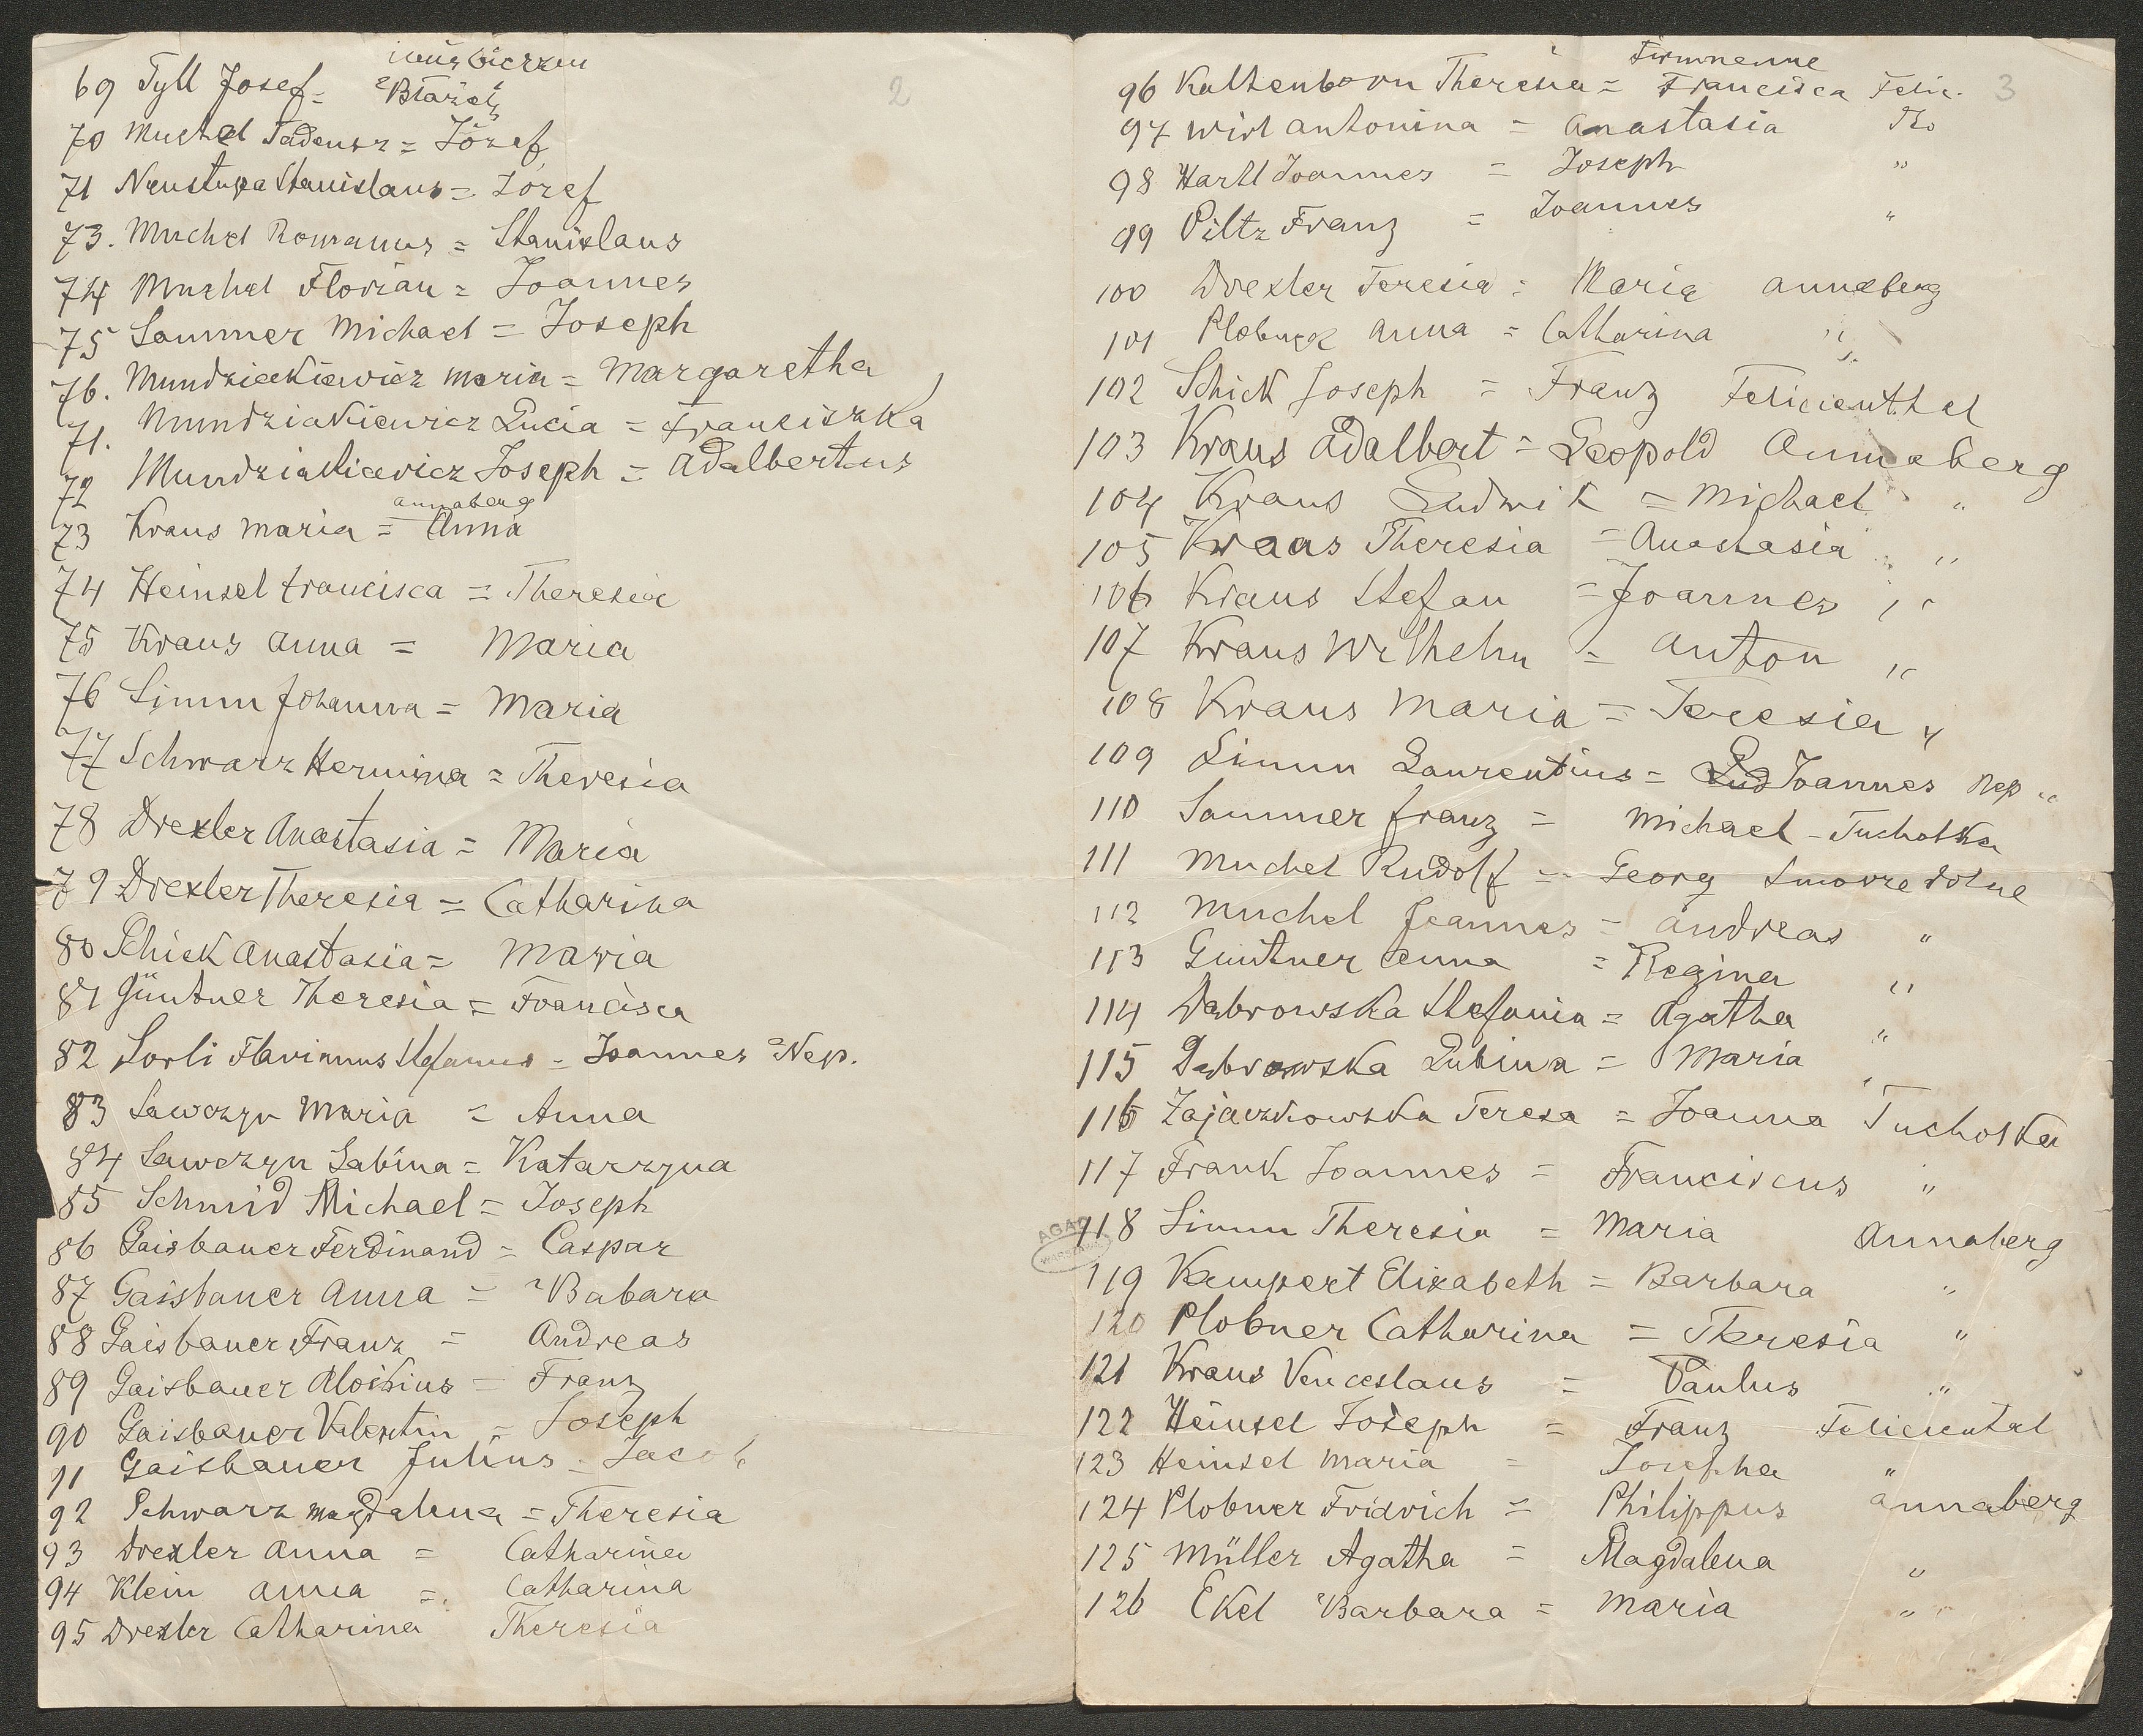 2
69 Tyll Josef = Błażej
70 Muchel Tadeusz = Józef
71 Stanislaus = Józef
73. Muchel Romanus = Stanislaus
74 Muchel Florian = Joannes
75 Sammer Michael = Joseph
76. Mundziakiewicz Maria = Margaretha
71. Mundziakiewicz Lucia = Franciszka
72 Mundziakiewicz Joseph = Adalbertus
annaberg
73 Kraus Maria = Anna
74 Heinsel Francisca = Theresia
75 Kraus Anna = Maria
76 Simm Johanna = Maria
77 Schwarz Hermina = Theresia
78 Drexler Anastasia = Maria
79 Drexler Theresia = Catharina
80 Schick Anastasia = Maria
81 Güntner Theresia = Francisca
82 Sorli = Joannes Nep.
83 Sawczyn Maria = Anna
84 Sawczyn Sabina = Katarzyna
85 Schmid Michael = Joseph
86 Gaisbauer Ferdinand = Caspar
87 Gaisbauer Anna = Babara
88 Gaisbauer Franz = Andreas
89 Gaisbauer Aloisius = Franz
90 Gaisbauer Valentin = Joseph
91 Gaisbauer Julius = Jacob
92 Schwarz Magdalena = Theresia
93 Drexler Anna = Catharina
94 Klein Anna = Catharina
95 Drexler Catharina Theresia
3
Firmnenne
96 Kaltenborn Theresia = Francisca Felic.
97 Wirl Antonina = Anastasia
98 Hartl Joannes = Joseph "
99 Piltz Franz = Joannes "
100 Drexler Teresia = Maria Annaberg
101 Anna = Catharina "
102 Schick Joseph = Franz Felicienthal
103 Kraus Adalbert = Leopold Annaberg
104 Kraus Ludwik = Michael "
105 Kraus Theresia = Anastasia "
106 Kraus Stefan = Joannes "
107 Kraus Wilhelm = Anton "
108 Kraus Maria = Teresia "
109 Simm Laurentius = Lud Joannes Nep "
110 Sammer Franz = Michael - Tucholka
111 Muchel Rudolf = Georg Smorze dolne
112 Muchel Joannes = Andreas "
113 Guntner Anna = Regina "
114 Dabrowska Stefania = Agatha "
115 Dabrowska Lubina = Maria
116 Zajaczkowska Teresa = Joanna Tucholka
117 Frank Joannes = Franciscus "
118 Simm Theresia = Maria Annaberg
119 Kempert Elisabeth = Barbara "
120 Plobner Catharina = Theresia "
121 Kraus Venceslaus = Paulus "
122 Heinsel Joseph = Franz Feliciental
123 Heinsel Maria = Josepha "
124 Plobner Fridrich = Philippus Annaberg
125 Müller Agatha = Magdalena "
126 Ekel Barbara = Maria "
AGAD
WARSZAWA